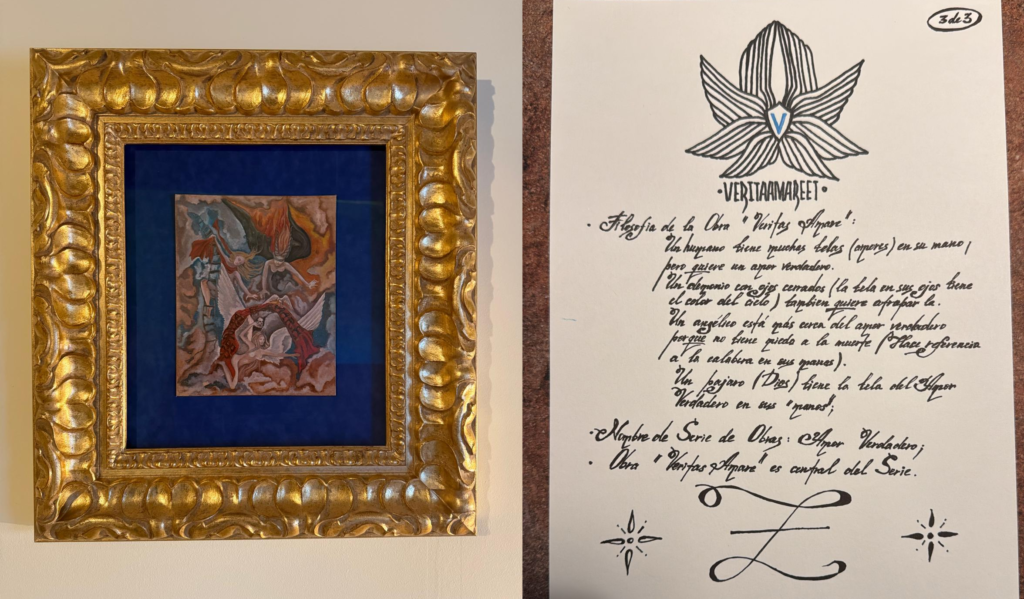 3 de 3
V
·VERITAAMAREET·
· Filosofia de la Obra "Veritas Amare":
Un humano tiene muchas telas (amores) en su mano,
pero quiere un amor verdadero.
Un demonio con ojos cerrados (la tela en sus ojos tiene
el color del Cielo) tambien quiere atrapar la.
Un angélico está más cerca del amor verdadero
porque no tiene miedo a la muerte (Hace referencia
a la calabera en sus manos).
Un pajaro (Dios) tiene la tela del Amor
Verdadero en sus "manos";
· Nombre de Serie de Obras: Amor Verdadero;
· Obra "Veritas Amare" es central del Serie.